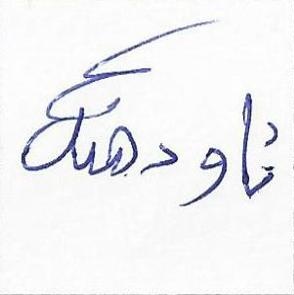 ناودهنگ